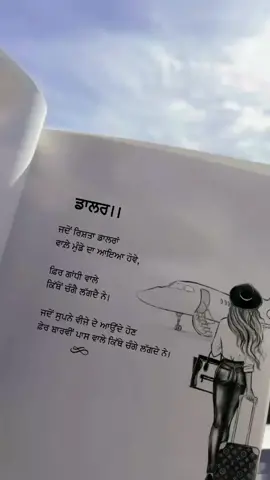 ਡਾਲਰ।।
ਜਦੋਂ ਰਿਸ਼ਤਾ ਡਾਲਰਾਂ
ਵਾਲੇ ਮੁੰਡੇ ਦਾ ਆਇਆ ਹੋਵੇ,
ਫਿਰ ਗਾਂਧੀ ਵਾਲੇ
ਕਿੱਥੋਂ ਚੰਗੇ ਲੱਗਦੇ ਨੇ।
ਜਦੋਂ ਸੁਪਨੇ ਵੀਜ਼ੇ ਦੇ ਆਉਂਦੇ ਹੋਣ
ਫ਼ੇਰ ਬਾਰਵੀਂ ਪਾਸ ਵਾਲੇ ਕਿੱਥੇ ਚੰਗੇ ਲੱਗਦੇ ਨੇ।